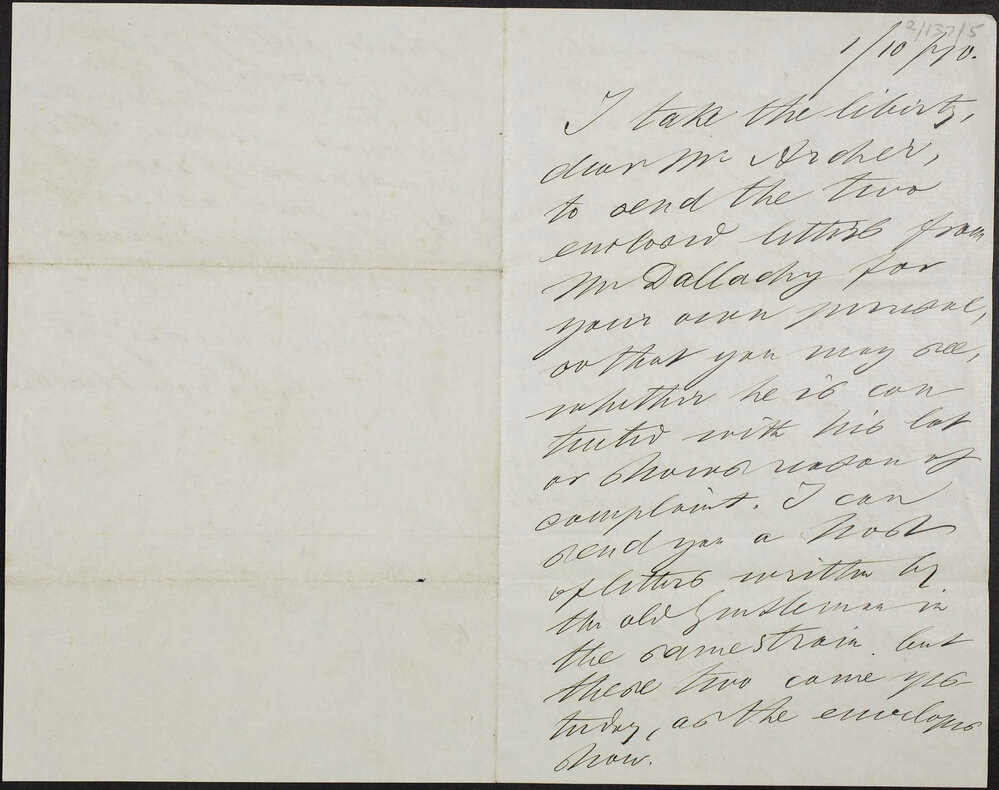 2/137/5
1/10/70.
I take the liberty,
dear Mr Archer,
to send the two
enclosed letters from
Mr Dallachy for
your own perusal,
so that you may see,
whether he is con
tented with his lot
or shows reason of
complaint. I can
send you a host
of letters written by
the old Gentleman in
the same strain. but
these two came yes-
terday, as the envelopes
show.